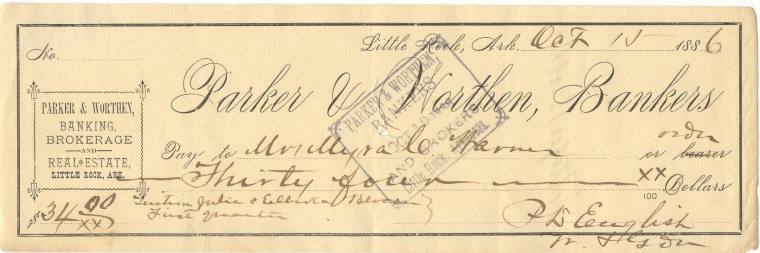 No. Little Rock, Ark. Oct 15 1886
Parker & Worthen, Bankers
PARKER & WORTHEN,
BANKING,
BROKERAGE
AND
REAL ESTATE,
LITTLE ROCK, ARK.
PARKER & WORTHEN,
BANKERS
OCT
AND BROKERS
LITTLE ROCK,
order
Pay to Mrs Myra C Warner or bearer
Thirty four XX/100 Dollars
$34 00/XX
Tuition Julia &
First quarter
P D English